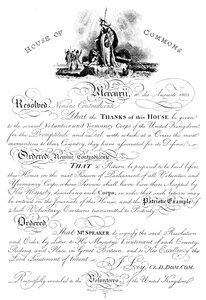 HOUSE OF COMMONS
Mercurii, 10 die Augusti 1803.
Resolved Nemine Contradicente
That the THANKS of this HOUSE be given
to the several Volunteer and Yeomanry Corps of the United Kingdom
for the Promptitude and Zeal with which at a Crisis the most
momentous to their Country, they have associated for its Defence.
Ordered Nemine Contradicente
THAT a Return be prepared to be laid before
this House in the next Session of Parliament of all Volunteer and
Yeomanry Corps whose Services shall have been then Accepted by
His Majesty, describing each Corps, in order that such Return may
be entered on the Journals of this House, and the Patriotic Example
of such Voluntary Exertions transmitted to Posterity.
Ordered
That Mr. SPEAKER do signify the said Resolution
and Order by Letter to His Majesty's Lieutenant of each County,
Riding and Place in Great Britain, and to His Excellency the
Lord Lieutenant of Ireland.
J. Ley, CL.D.DOM.COM.
Respectfully inscribed to the Volunteers of the United Kingdom